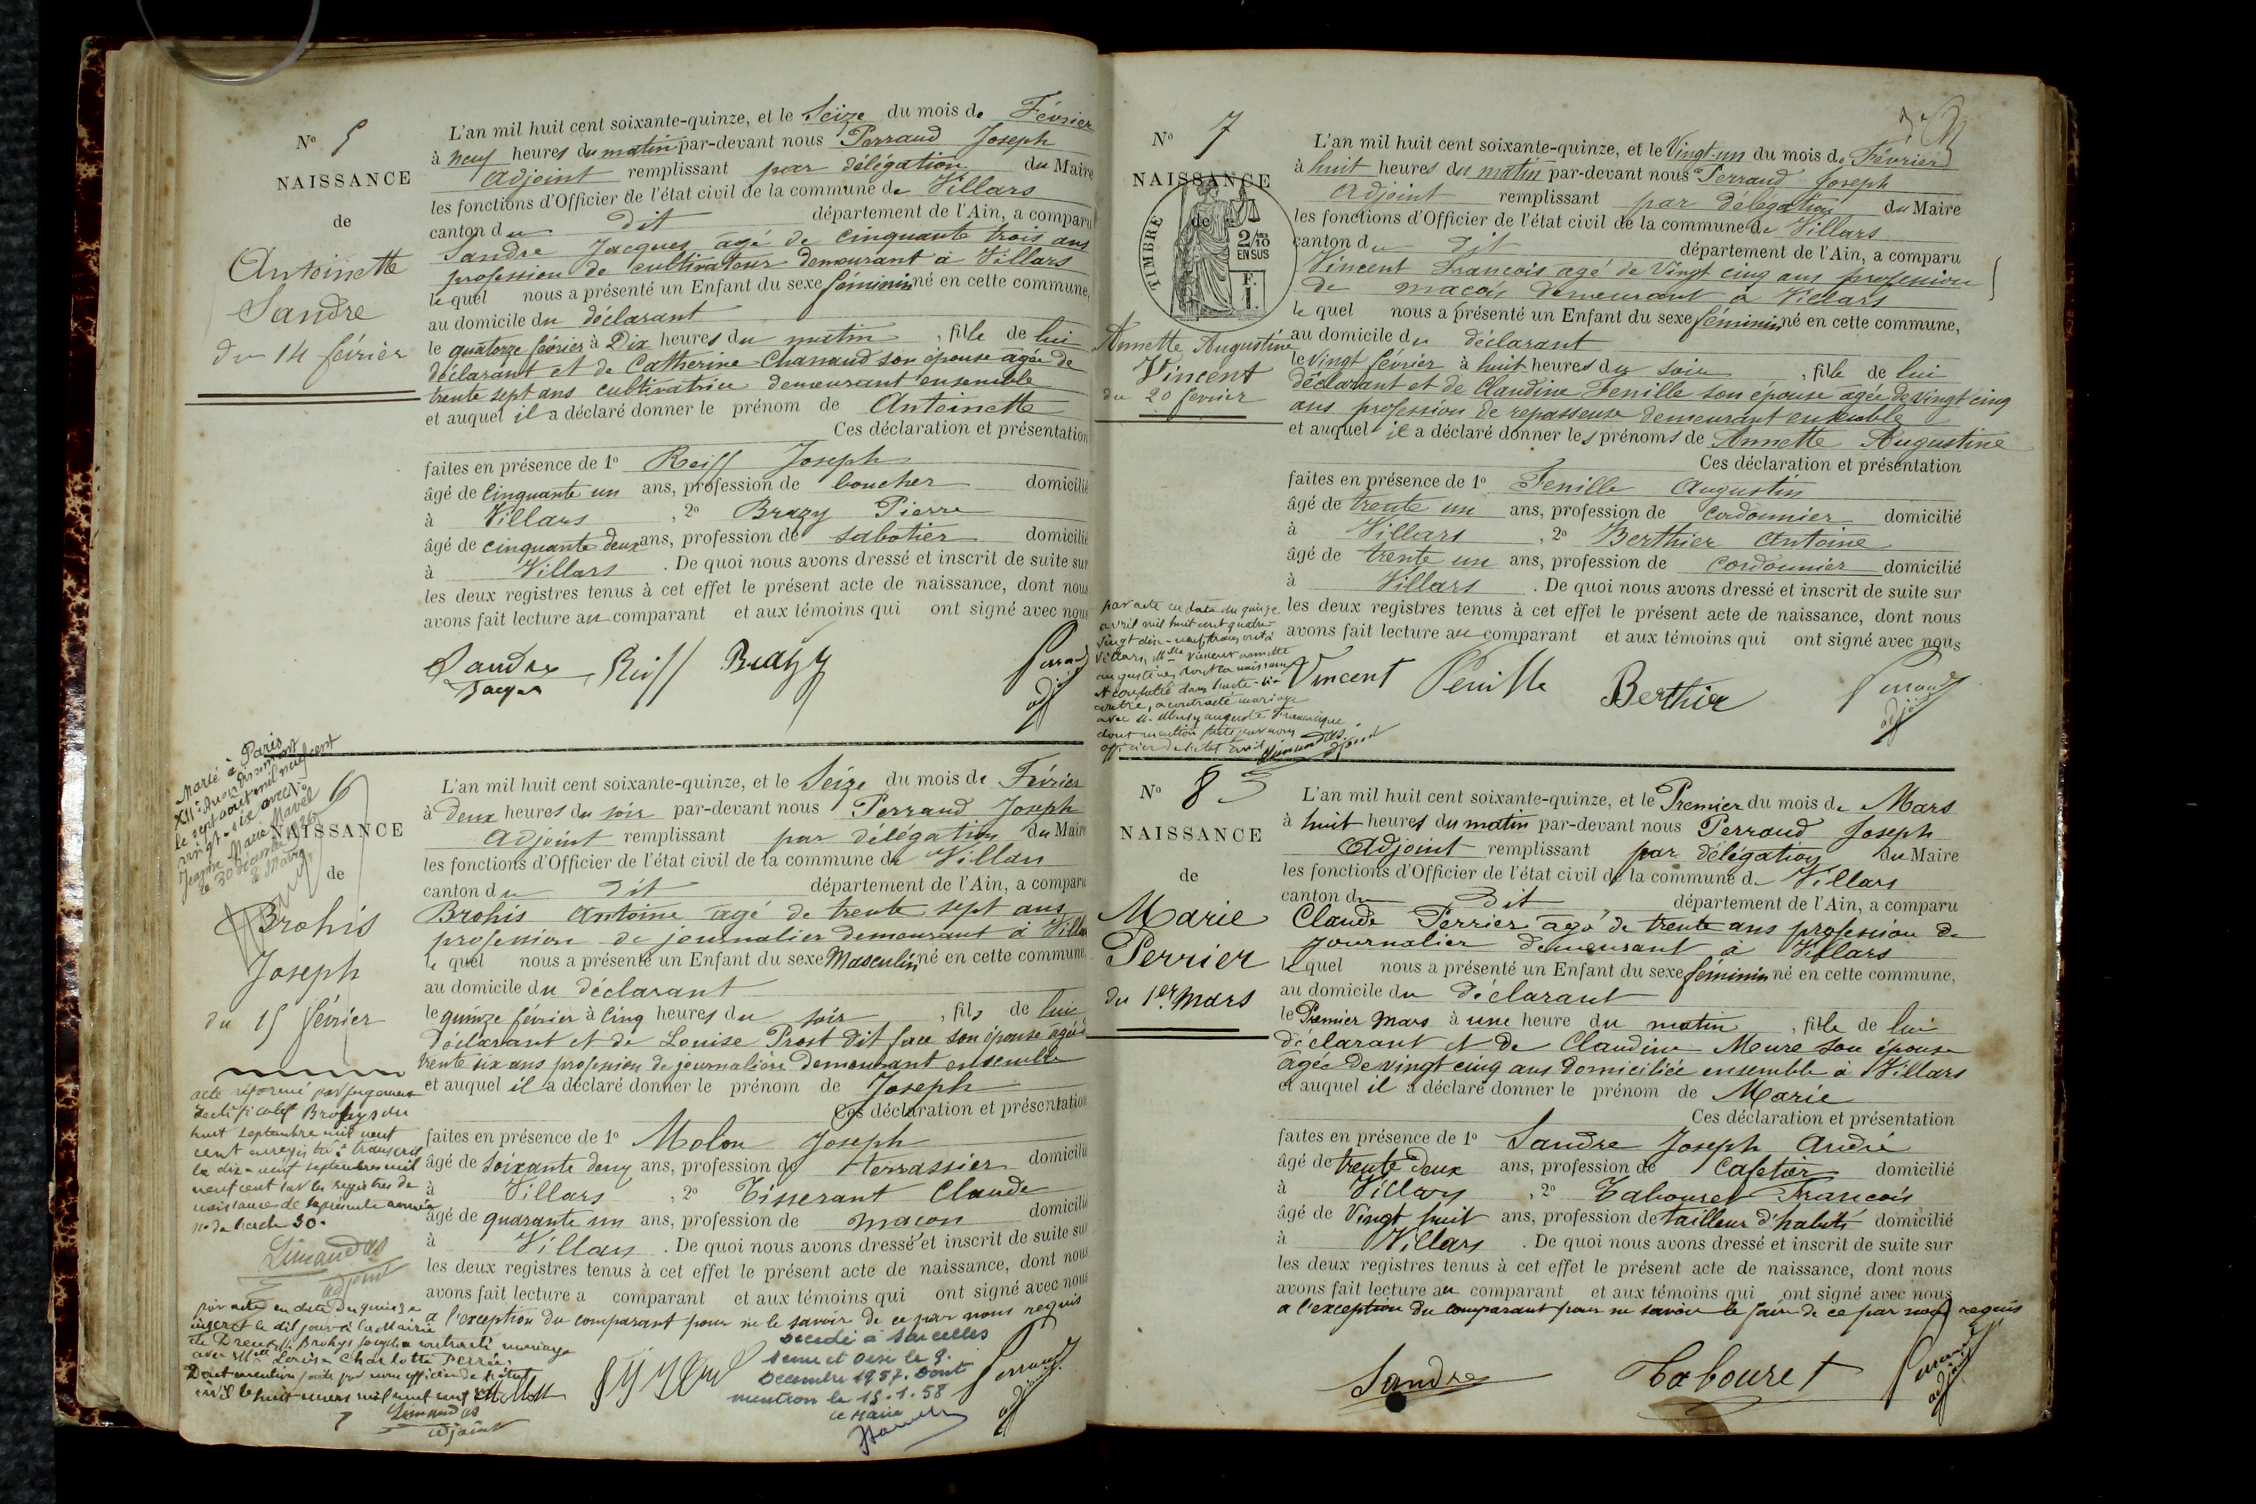 N° 5
NAISSANCE
de
Antoinette
Sandre
du 14 février
L'an mil huit cent soixante-quinze, et le Seize du mois de Février
à neuf heures du matin par-devant nous Perraud Joseph
adjoint remplissant par délégation du Maire
les fonctions d'Officier de l'état civil de la commune de Villars
canton du dit département de l'Ain, a comparu
Sandre Jacques agé de cinquante trois ans
profession de cultivateur demeurant à Villars
lequel nous a présenté un Enfant du sexe féminin né en cette commune,
au domicile du déclarant
le quatorze février à Dix heures du matin, fille de lui
déclarant et de Catherine Chanaud son épouse agée de
trente sept ans cultivatrice demeurant ensemble
et auquel il a déclaré donner le prénom de Antoinette
Ces déclaration et présentation
faites en présence de 1° Reiff Joseph
âgé de Cinquante un ans, profession de boucher domicilié
à Villars, 2° Brazy Pierre
âgé de cinquante deux ans, profession de sabotier domicilié
à Villars. De quoi nous avons dressé et inscrit de suite sur
les deux registres tenus à cet effet le présent acte de naissance, dont nous
avons fait lecture au comparant et aux témoins qui ont signé avec nous
Sandre Reiff Brazy Perraud
Jacques adj
Marié à Paris
XIIe arrondissement
le sept août mil neuf cent
vingt-six avec
Jeanne Marie Mavel
le 30 décembre 1926
le Maire
N° 6
NAISSANCE
de
Brohis
Joseph
du 15 février
L'an mil huit cent soixante-quinze, et le Seize du mois de Février
à deux heures du soir par-devant nous Perraud Joseph
adjoint remplissant par délégation du Maire
les fonctions d'Officier de l'état civil de la commune de Villars
canton du dit département de l'Ain, a comparu
Brohis Antoine agé de trente sept ans
profession de journalier demeurant à Villars
lequel nous a présenté un Enfant du sexe Masculin né en cette commune,
au domicile du déclarant
le quinze février à Cinq heures du soir, fils de lui
déclarant et de Louise Prost dit face son épouse agée
trente six ans profession de journalière demeurant ensemble
et auquel il a déclaré donner le prénom de Joseph
Ces déclaration et présentation
faites en présence de 1° Molon Joseph
âgé de soixante deux ans, profession de terrassier domicilié
à Villars, 2° Tisserant Claude
âgé de quarante un ans, profession de maçon domicilié
à Villars. De quoi nous avons dressé et inscrit de suite sur
les deux registres tenus à cet effet le présent acte de naissance, dont nous
avons fait lecture a comparant et aux témoins qui ont signé avec nous
a l'exception du comparant pour ne le savoir de ce par nous requis
acte réformé par jugement
rectificatif Brohys du
huit septembre mil neuf
cent enregistré & transcrit
le dix-neuf septembre mil
neuf cent sur les registres de
naissances de la présente année
n° de l'acte 30.
Limandas
adjoint
par acte en date du quinze
du dit jour à la Mairie
de Dreux Brohys Joseph a contracté mariage
avec Mlle Louise Charlotte Perrée.
Dont mention faite par nous officier de l'état
civil le huit mars mil neuf cent
Limandas
adjoint
Décédé à Sarcelles
Seine et Oise le 9.
Décembre 1957. Dont
mention le 15.1.58
Le Maire
Perraud
adj
N° 7
NAISSANCE
de
TIMBRE
2/10
EN SUS
F.
1.
Annette Augustine
Vincent
du 20 février
L'an mil huit cent soixante-quinze, et le Vingt-un du mois de Février
à huit heures du matin par-devant nous Perraud Joseph
adjoint remplissant par délégation du Maire
les fonctions d'Officier de l'état civil de la commune de Villars
canton du dit département de l'Ain, a comparu
Vincent François agé de Vingt cinq ans profession
de maçon demeurant à Villars
lequel nous a présenté un Enfant du sexe féminin né en cette commune,
au domicile du déclarant
le Vingt février à huit heures du soir, fille de lui
déclarant et de Claudine Fenille son épouse agée de vingt cinq
ans profession de repasseuse demeurant ensemble
et auquel il a déclaré donner les prénoms de Annette Augustine
Ces déclaration et présentation
faites en présence de 1° Fenille Augustin
âgé de trente un ans, profession de cordonnier domicilié
à Villars, 2° Berthier Antoine
âgé de trente un ans, profession de cordonnier domicilié
à Villars. De quoi nous avons dressé et inscrit de suite sur
les deux registres tenus à cet effet le présent acte de naissance, dont nous
avons fait lecture au comparant et aux témoins qui ont signé avec nous
par acte en date du quinze
avril mil huit cent quatre-
vingt dix-neuf transcrit à
Villars, Mlle Vincent Annette
Augustine, dont la naissance
est constatée dans l'acte ci-
contre, a contracté mariage
avec Auguste Francisque
dont mention faite par nous
officier de l'état civil
Limandas
adjoint
Vincent Fenille Berthier Perraud
adjoint
N° 8
NAISSANCE
de
Marie
Perrier
du 1er Mars
L'an mil huit cent soixante-quinze, et le Premier du mois de Mars
à huit heures du matin par-devant nous Perraud Joseph
Adjoint remplissant par délégation du Maire
les fonctions d'Officier de l'état civil de la commune de Villars
canton du Dit département de l'Ain, a comparu
Claude Perrier agé de trente ans profession de
journalier demeurant à Villars
lequel nous a présenté un Enfant du sexe féminin né en cette commune,
au domicile du déclarant
le Premier Mars à une heure du matin, fille de lui
déclarant et de Claudine Meure son épouse
agée de vingt cinq ans domiciliée ensemble à Villars
et auquel il a déclaré donner le prénom de Marie
Ces déclaration et présentation
faites en présence de 1° Sandre Joseph André
âgé de trente deux ans, profession de cafetier domicilié
à Villars, 2° Tabouret François
âgé de Vingt huit ans, profession de tailleur d'habits domicilié
à Villars. De quoi nous avons dressé et inscrit de suite sur
les deux registres tenus à cet effet le présent acte de naissance, dont nous
avons fait lecture au comparant et aux témoins qui ont signé avec nous
a l'exception du comparant pour ne savoir le faire de ce par nous requis
Sandre Tabouret Perraud
adjoint